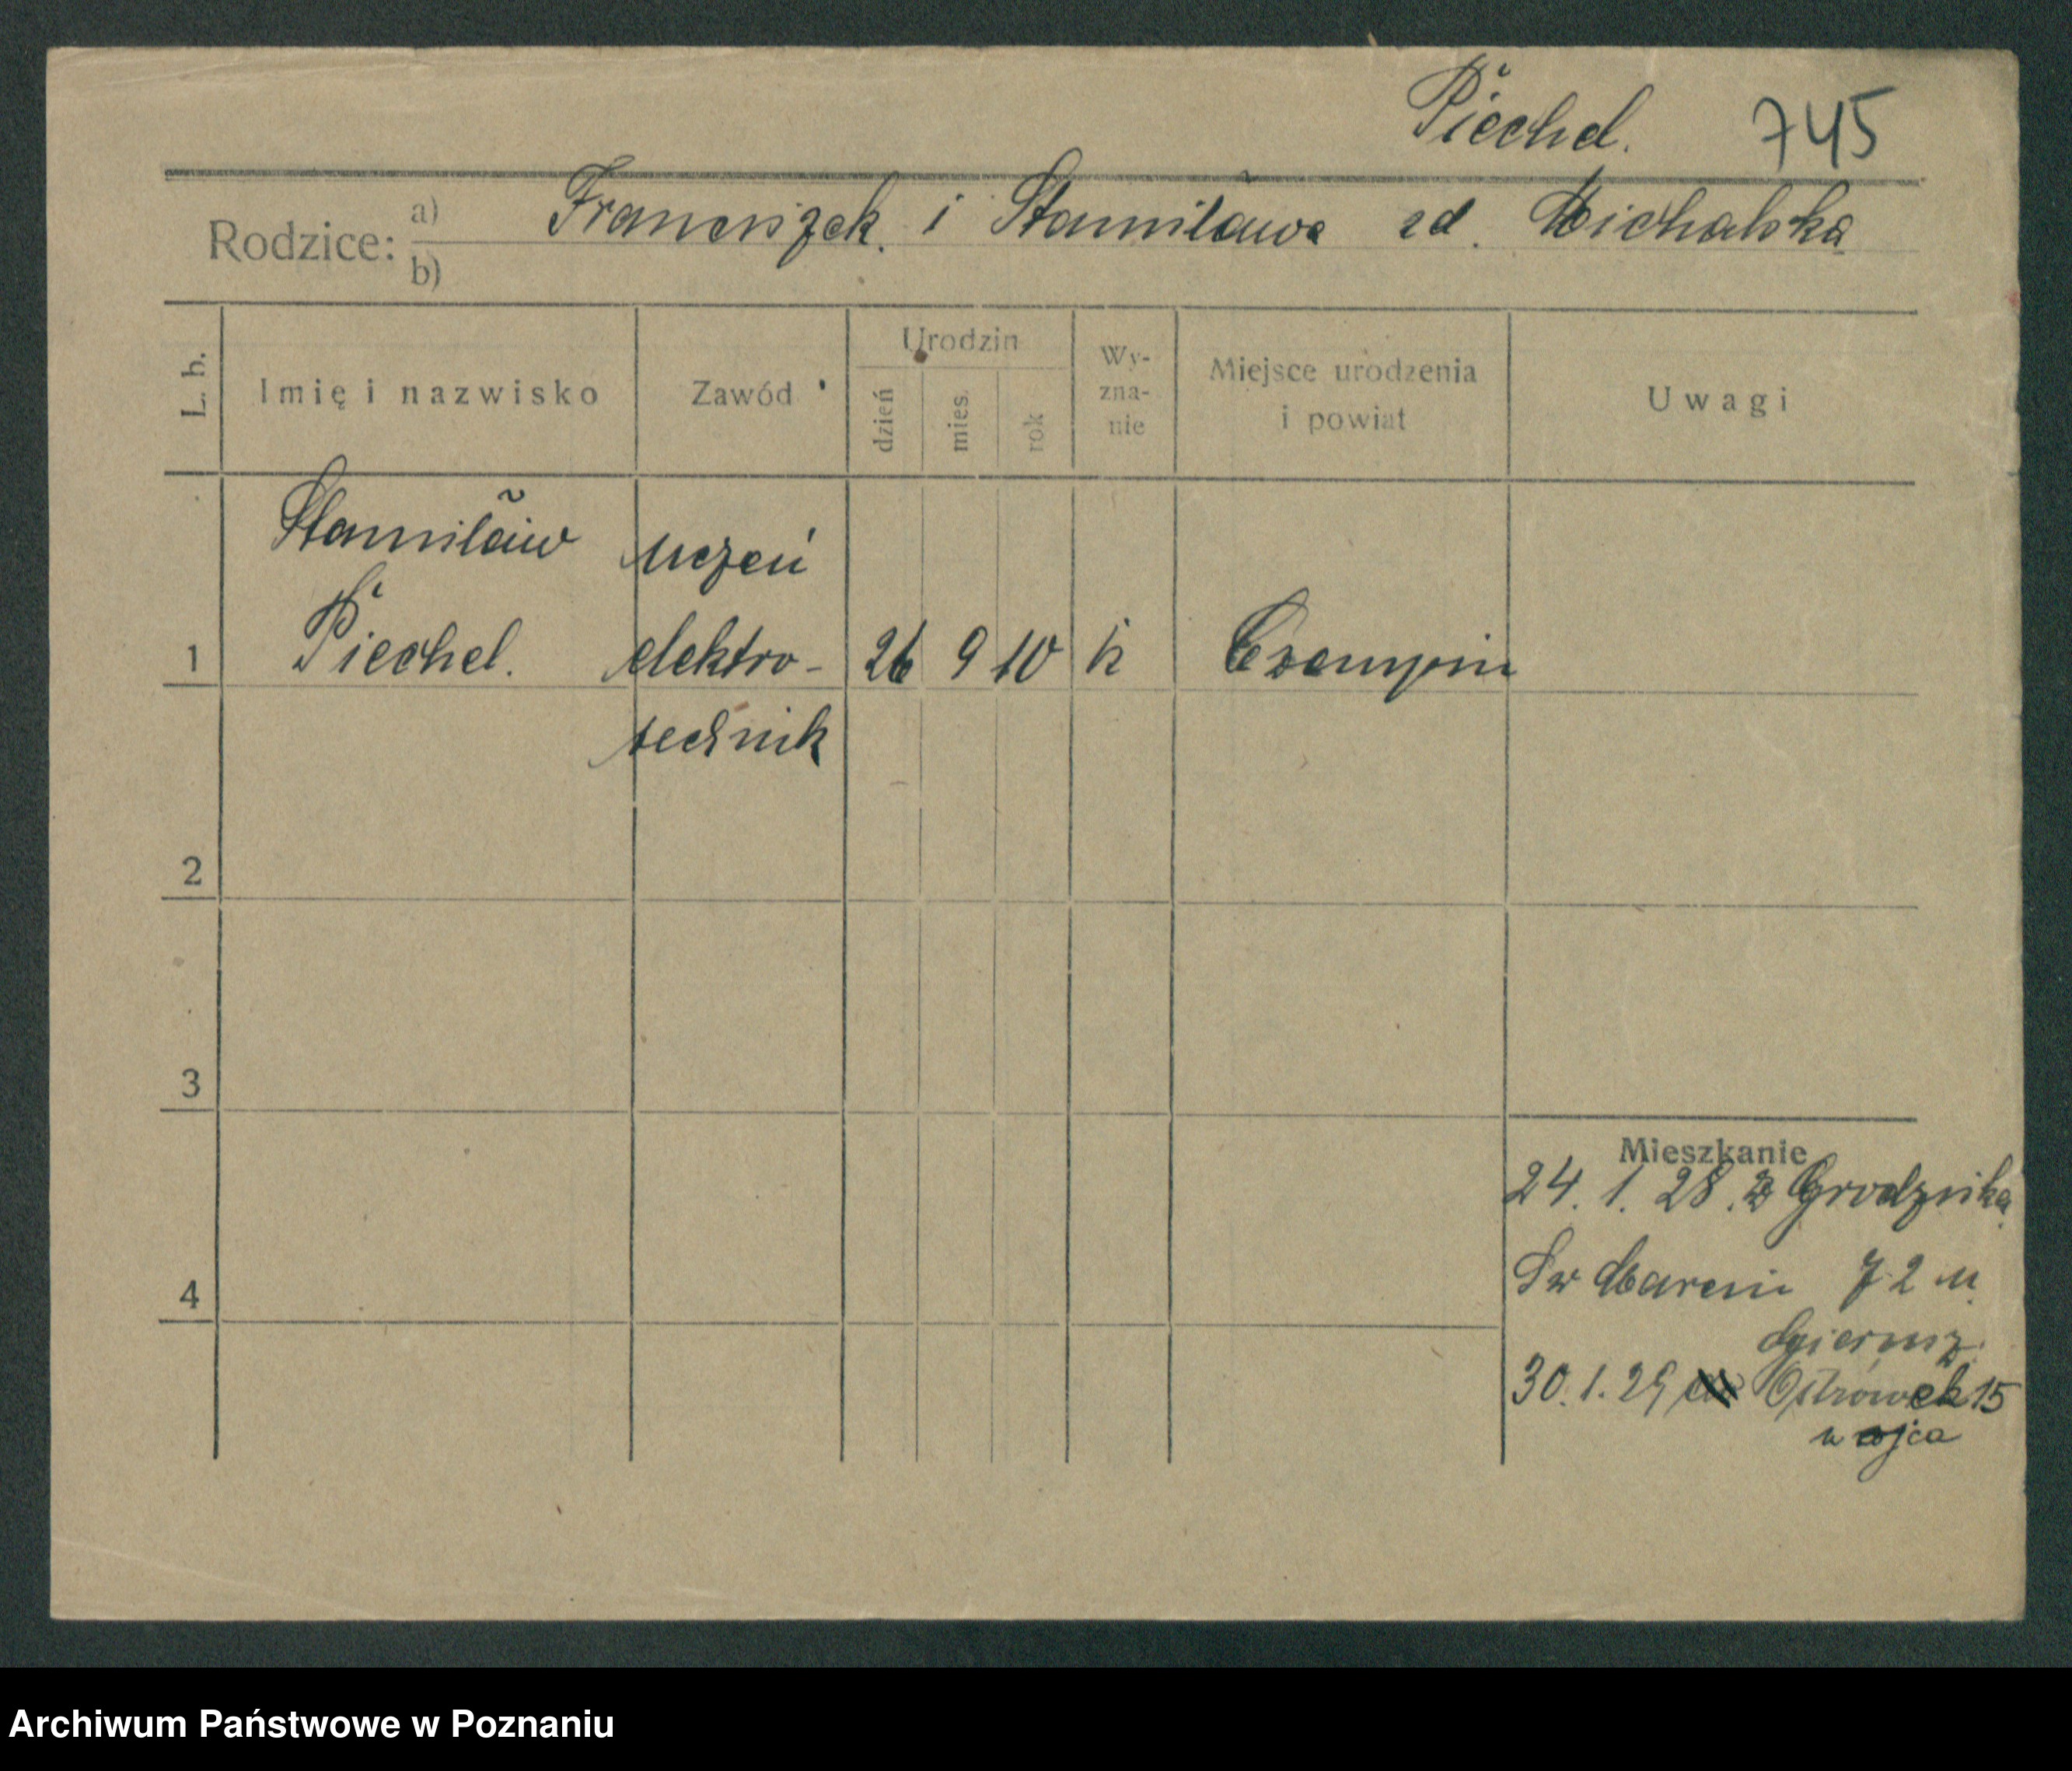 Piechel. 745
Rodzice: a) Franciszek i Stanisława zd. Michalska
b)
L. b. Imię i nazwisko Zawód Urodzin dzień mies. rok Wy-zna-nie Miejsce urodzenia i powiat Uwagi
Stanisław uczeń
1 Piechel. elektro- 26 9 10 k Czempin
technik
2
3
Mieszkanie
24. 1. 28. z Grodziska
Św Marcin 72 u
4
30. 1. 29 Ostrówek 15
u ojca
Archiwum Państwowe w Poznaniu